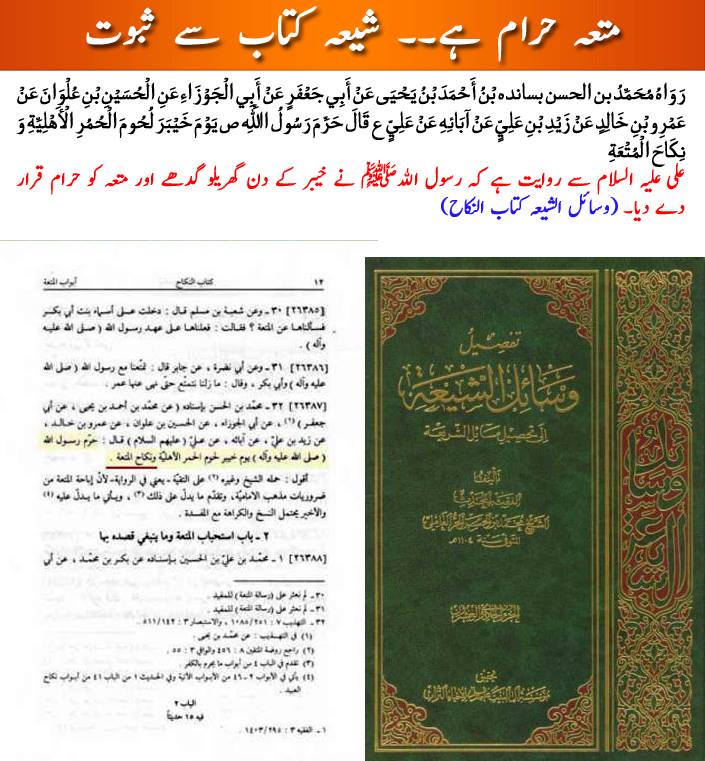 متعہ حرام ہے۔۔ شیعہ کتاب سے ثبوت
رَوَاهُ مُحَمَّدُ بن الحسن بسانده بْنُ أَحْمَدَ بْنُ يَحْيَى عَنْ أَبِي جَعْفَرٍ عَنْ أَبِي الْجَوْزَاءِ عَنِ الْحُسَيْنِ بْنِ عُلْوَانَ عَنْ
عَمْرِو بْنِ خَالِدٍ عَنْ زَيْدِ بْنِ عَلِيٍّ عَنْ آبَائِهِ عَنْ عَلِيٍّ ع قَالَ حَرَّمَ رَسُولُ اللَّهِ ص يَوْمَ خَيْبَرَ لُحُومَ الْحُمُرِ الْأَهْلِيَّةِ وَ
نِكَاحَ الْمُتْعَةِ
علی علیہ السلام سے روایت ہے کہ رسول اللہ ﷺ نے خیبر کے دن گھریلو گدھے اور متعہ کو حرام قرار
دے دیا۔ (وسائل الشیعہ کتاب النکاح)
١٢ كتاب النكاح أبواب المتعة
[٢٦٣٨٥] ٣٠ ـ وعن شعبة بن مسلم قال : دخلت على أسماء بنت أبي بكر
فسألناها عن المتعة ؟ فقالت : فعلناها على عهد رسول الله ( صلى الله عليه
وآله ) .
[٢٦٣٨٦] ٣١ ـ وعن أبي نضرة ، عن جابر قال : تمتعنا مع رسول الله ( صلى الله
عليه وآله ) وأبي بكر ، وقال : ما زلنا نتمتع حتى نهى عنها عمر .
[٢٦٣٨٧] ٣٢ ـ محمد بن الحسن بإسناده ( عن محمد بن أحمد بن يحيى ، عن أبي
جعفر ) (١) ، عن أبي الجوزاء ، عن الحسين بن علوان ، عن عمرو بن خالد ،
عن زيد بن علي ، عن آبائه ، عن علي ( عليهم السلام ) قال : حرّم رسول الله
( صلى الله عليه وآله ) يوم خيبر لحوم الحمر الأهلية ونكاح المتعة .
أقول : حمله الشيخ وغيره (٢) على التقية ـ يعني في الرواية ـ لأن إباحة المتعة من
ضروريات مذهب الامامية ، وتقدّم ما يدل على ذلك (٣) ، ويأتي ما يدلّ عليه (٤)
والأخير يحتمل النسخ والكراهة مع المفسدة .
٢ ـ باب استحباب المتعة وما ينبغي قصده بها
[٢٦٣٨٨] ١ ـ محمد بن علي بن الحسين بإسناده عن بكر بن محمد ، عن أبي
٣٠ ـ لم نعثر على ( رسالة المتعة ) للمفيد .
٣١ ـ لم نعثر على ( رسالة المتعة ) للمفيد .
٣٢ ـ التهذيب ٧ : ٢٥١ / ١٠٨٥ ، والاستبصار ٣ : ١٤٢ / ٥١١ .
(١) في التهذيب : عن محمد بن يحيى .
(٢) راجع روضة المتقين ٨ : ٤٥٦ والوافي ٣ : ٥٥ .
(٣) تقدم في الباب ٤ من أبواب ما يحرم بالكفر .
(٤) يأتي في الأبواب ٢ ـ ٤٦ من الأبواب الآتية وفي الحديث ١ من الباب ٤١ من أبواب نكاح
العبيد .
الباب ٢
فيه ١٥ حديثاً
١ ـ الفقيه ٣ : ٢٩٥ / ١٤٠٣ .
تفصيل
وسائل الشيعة
إلى تحصيل مسائل الشريعة
تأليف
الفقيه المحدث
الشيخ محمد بن الحسن الحر العاملي
المتوفى سنة ١١٠٤ هـ
تحقيق
مؤسسة آل البيت عليهم السلام لإحياء التراث
وسائل الشيعة